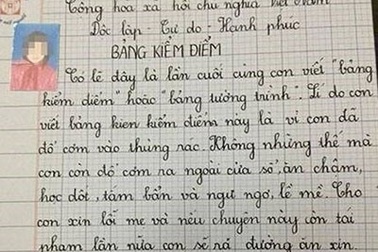 Cộng hòa xã hội chủ nghĩa Việt Nam
Độc lập - Tự do - Hạnh phúc
BẢNG KIỂM ĐIỂM
Có lẽ đây là lần cuối cùng con viết "bảng
kiểm điểm" hoặc "bảng tường trình". Lí do con
viết bảng kien kiểm điểm này là vì con đã
đổ cơm vào thùng rác. Không những thế mà
con còn đổ cơm ra ngoài cửa sổ, ăn chậm,
học dốt, tắm bẩn và ngu ngơ, lề mề. Cho
con xin lỗi mẹ và nếu chuyện này còn tái
phạm lần nữa con sẽ ra đường ăn xin.